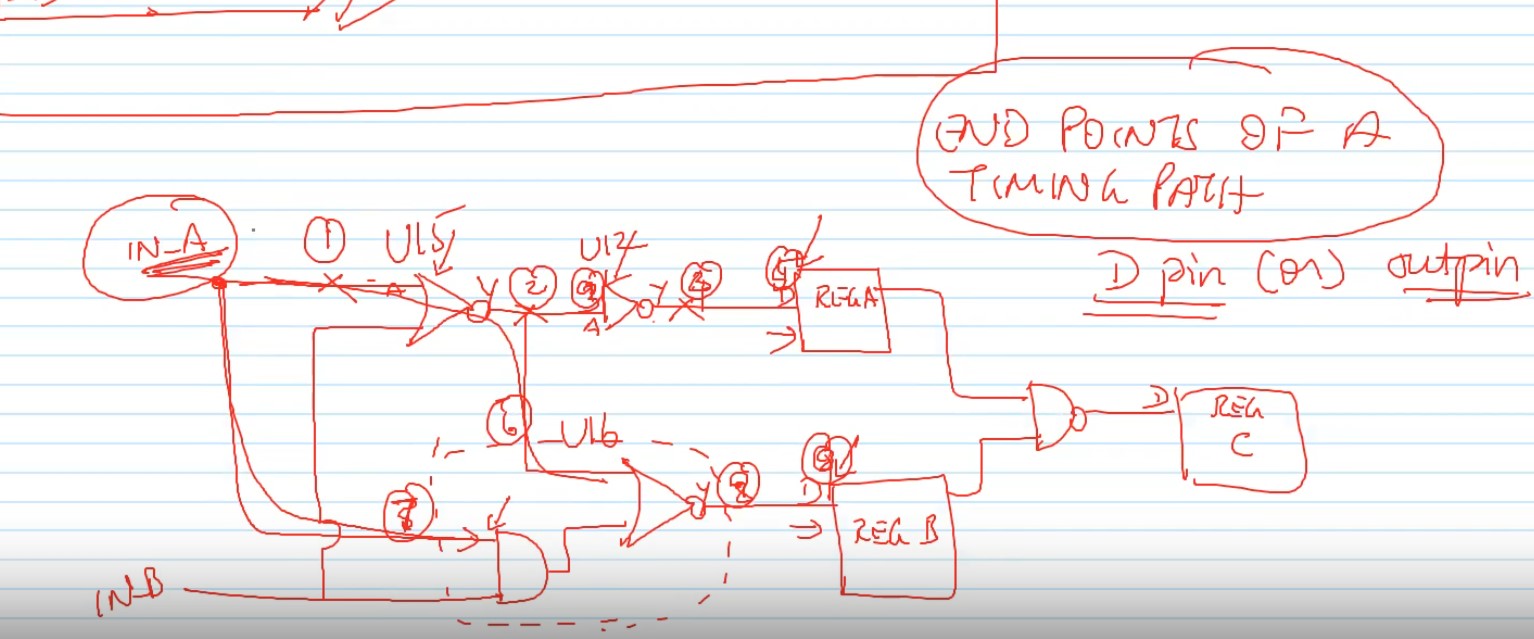 END POINTS OF A
TIMING PATH
D pin (or) outpin
IN_A
1
U15
A
Y
2
U12
A
Y
D
REG A
D
REG
C
6
U16
Y
D
REG B
IN_B